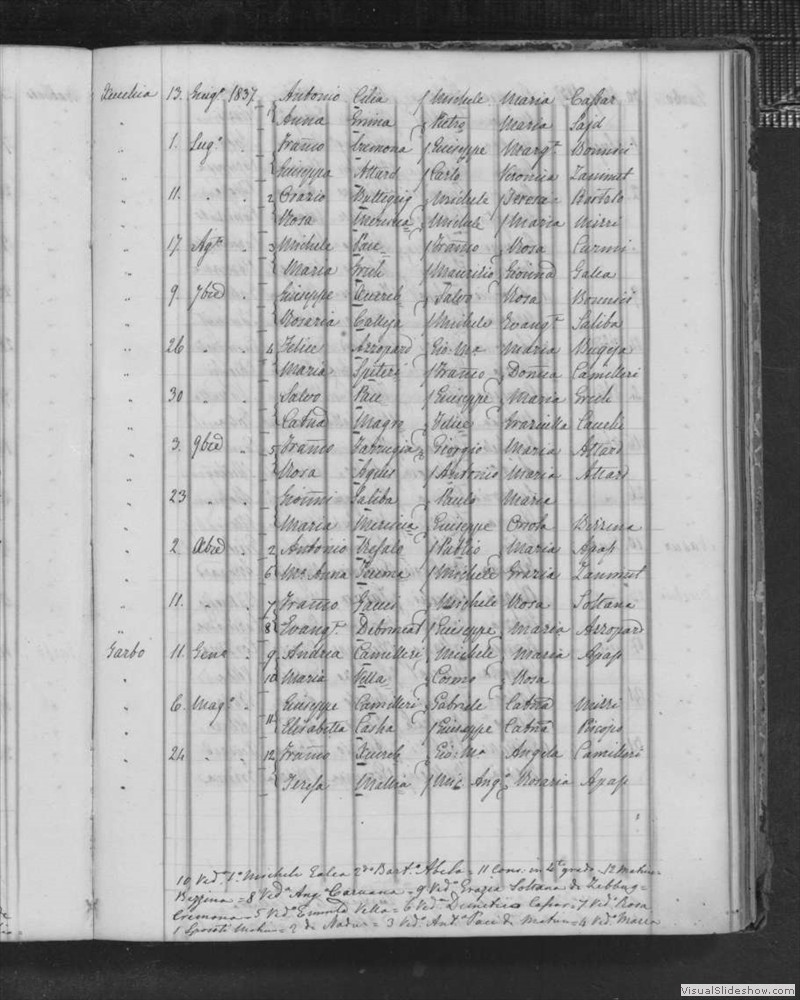 Xeuchia 13. Giug.o 1837. Antonio Celia / Michele Maria Cassar
" Anna Grima / Pietro Maria Sajd
" 1. Lug.o . Fran̄co Cremona / Giuseppe Marg.ta Bonnici
" Giuseppa Attard / Carlo Veronica Zammut
" 11. " . 2 Orazio Buttigieg / Michele Teresa Bartolo
" Rosa Mercieca / Michele / Maria Mizzi
" 17. Ag.to . 3 Michele Pace / Fran̄co Rosa Curmi
" Maria / Maurilio Gioanna Galea
" 9. 7bre . Giuseppe Xuereb Salvo Rosa Bonnici
" Rosaria Calleja / Michele Evang.ta Saliba
" 26 " . 4 Felice Azzopard Gio: M.a Maria Bugeja
" Maria Spiteri / Fran̄co Domca Camilleri
" 30 " . Salvo Pace / Giuseppe Maria Grech
" Catnā Magro Felice Graziulla Cauchi
" 3. 9bre . 5 Fran̄co Farrugia Giorgio Maria Attard
" Rosa Agius / Antonio Maria Attard
" 23 " . Gioāni Saliba Paulo Maria
" Maria Mercieca Giuseppe Orsola Bezzina
" 2 Xbre . 2 Antonio Refalo / Publio Maria Apap
" 6 M.a Anna / Michele Grazia Zammut
" 11. " . 7 Fran̄co Gauci Michele Rosa Soltana
" 8 Evang.ta Debrincat / Giuseppe Maria Azzopard
Garbo 11. Geno . 9 Andrea Camilleri / Michele Maria Apap
" 10 Maria Vella Cosmo Rosa
" 6. Mag.o . Giuseppe Camilleri Gabriele Catnā Mizzi
" 11 Elisabetta Cassha / Giuseppe Catnā Piscopo
" 24 " . 12 Fran̄co Xuereb Gio: M.a Angela Camilleri
" Teresa Mallia / Mic. Ang.o Rosaria Apap
10 Ved.a 1.o Michele Galea 2.do Bart.o Abela = 11 Cons: in 4.to grado = 12
Bezzina = 8 Ved.a Ang.o Caruana = 9 Ved.a Grazia Soltana di Zebbug =
Cremona = 5 Ved.a Vella = 6 Ved.a Demetrio Cassar = 7 Ved.o Rosa
1 = 2 da Nadur = 3 Ved.o Ant.a Pace di = 4 Ved.o Maria
VisualSlideshow.com